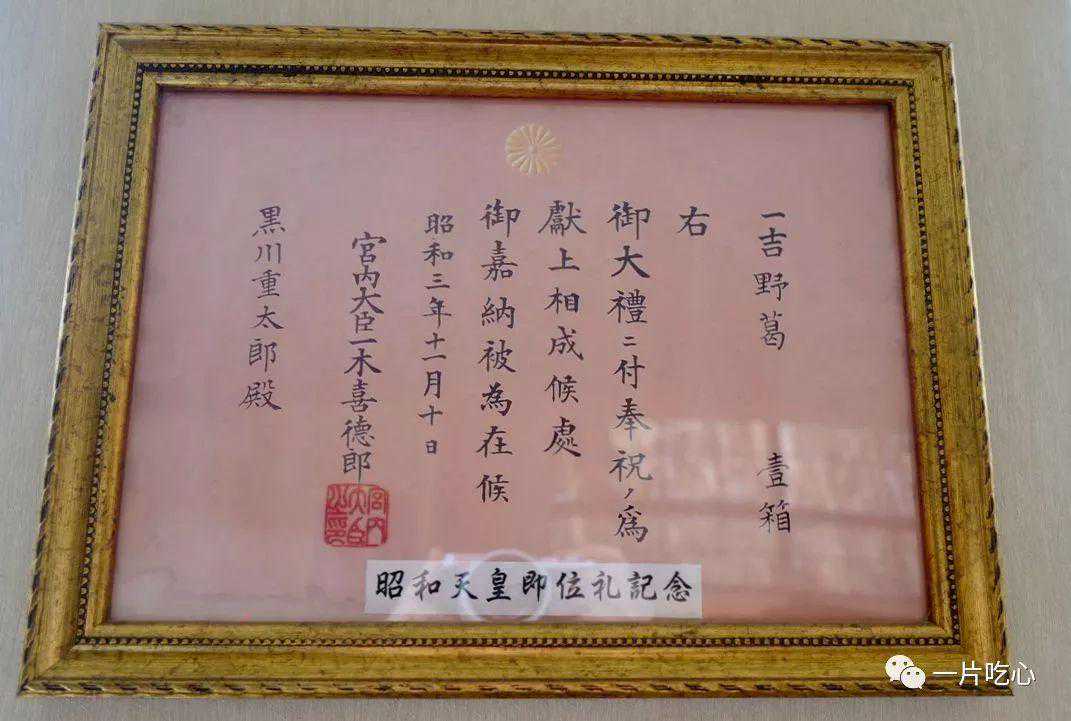 一吉野葛 壹箱
右
御大禮ニ付奉祝ノ爲
獻上相成候處
御嘉納被為在候
昭和三年十一月十日
宮内大臣一木喜德郎
宮内大臣之印
黒川重太郎殿
昭和天皇即位礼記念
一片吃心